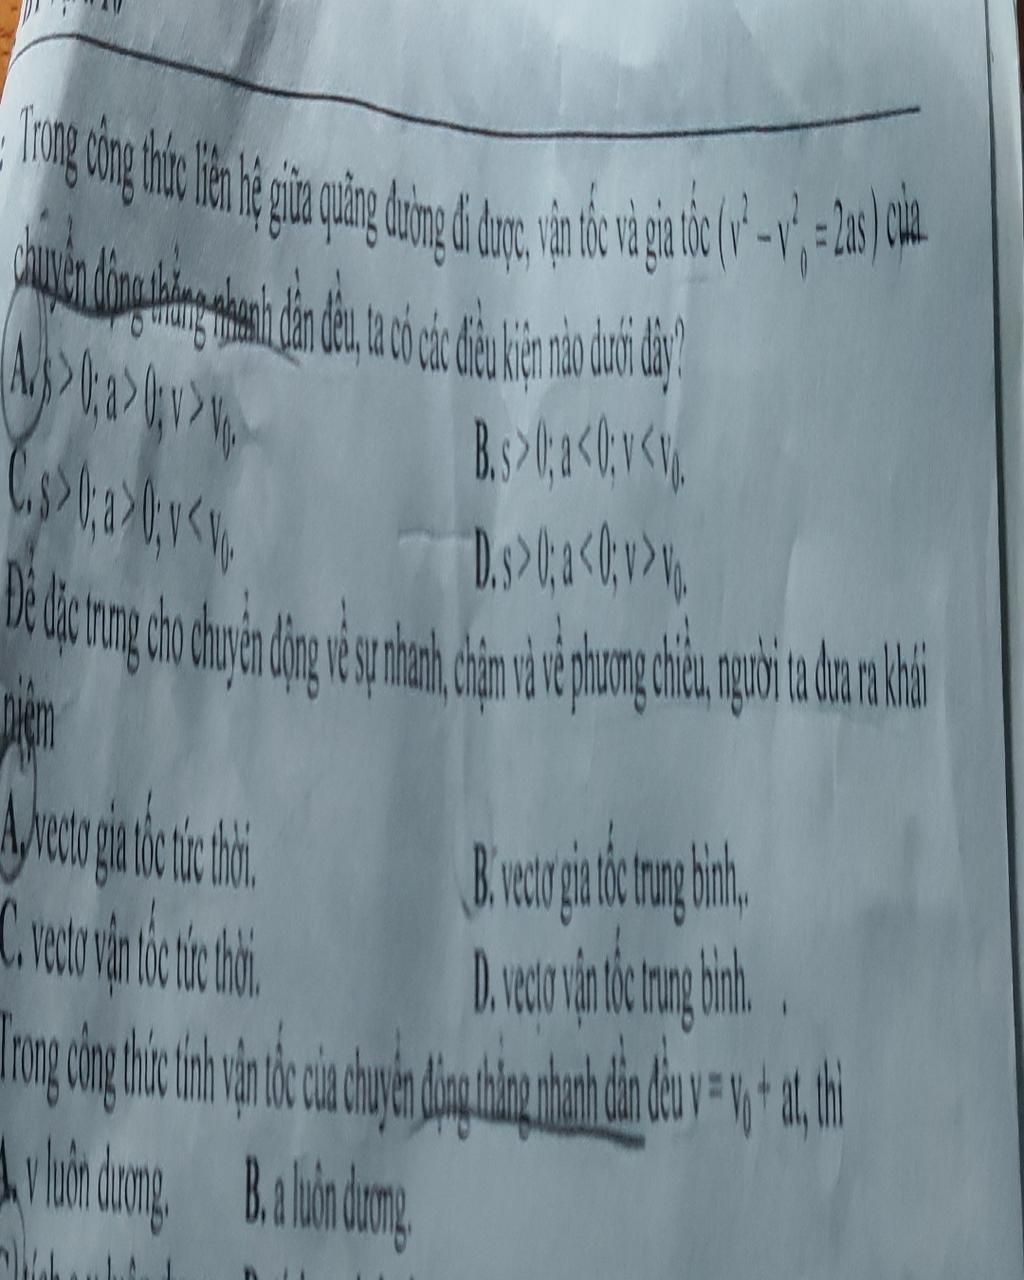 Trong công thức liên hệ giữa quãng đường đi được, vận tốc và gia tốc (v² – v²₀ = 2as) của
chuyển động thẳng nhanh dần đều, ta có các điều kiện nào dưới đây?
A. s > 0; a > 0; v > v₀.
B. s > 0; a < 0; v < v₀.
C. s > 0; a > 0; v < v₀.
D. s > 0; a < 0; v > v₀.
Để đặc trưng cho chuyển động về sự nhanh, chậm và về phương chiều, người ta đưa ra khái
niệm
A. vectơ gia tốc tức thời.
B. vectơ gia tốc trung bình,.
C. vectơ vận tốc tức thời.
D. vectơ vận tốc trung bình.
Trong công thức tính vận tốc của chuyển động thẳng nhanh dần đều v = v₀ + at, thì
A. v luôn dương.
B. a luôn dương.